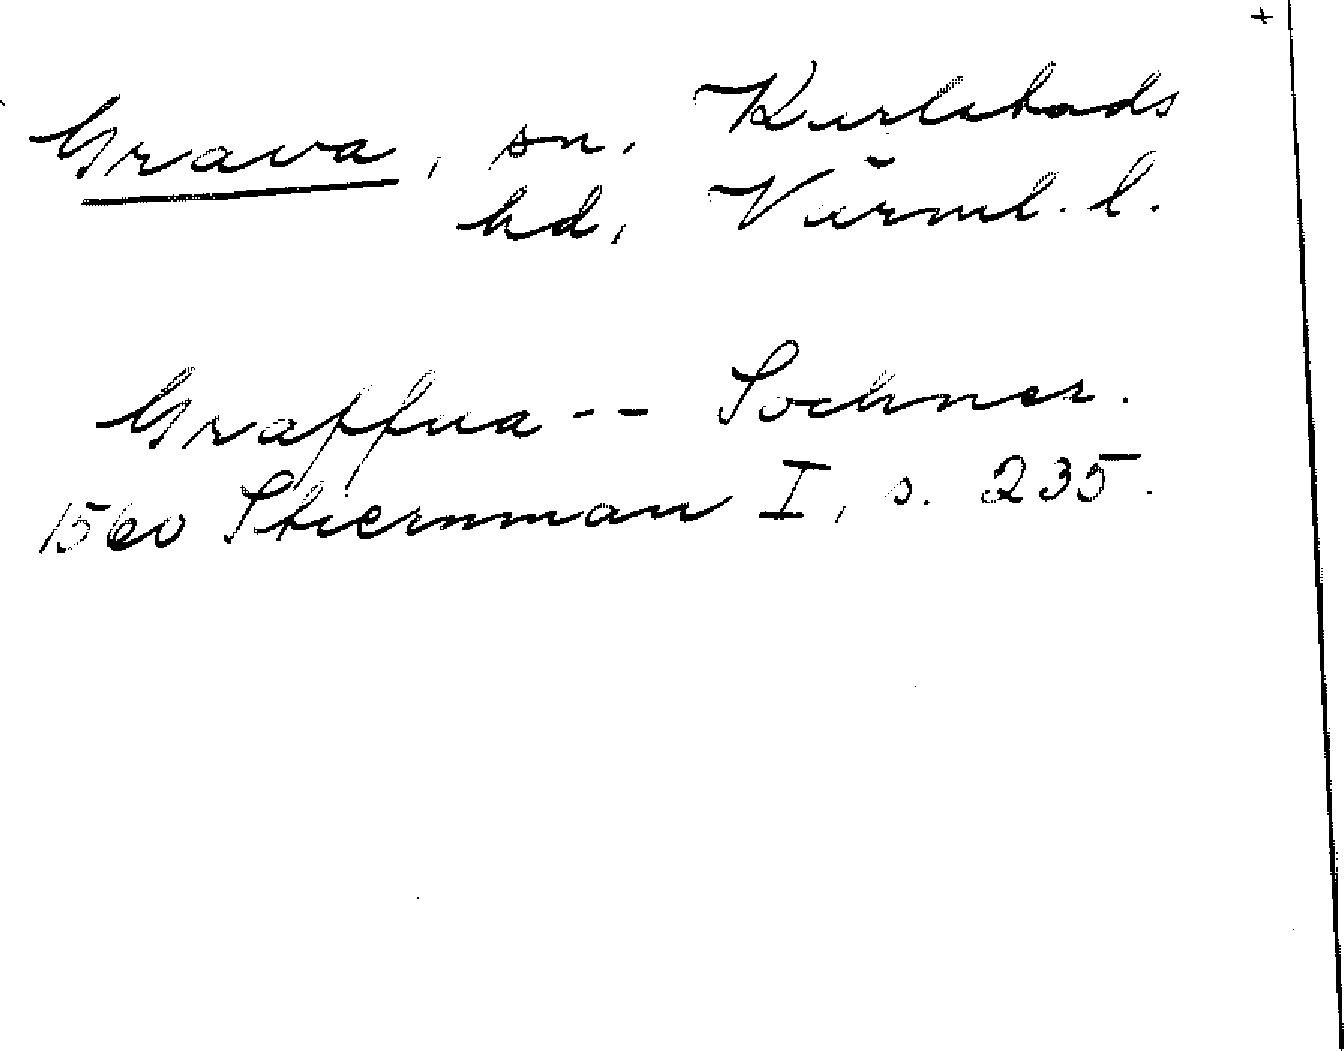 +
Grava, sn. Karlstads
hd, Värml. l.
Graffua -- Sochner.
1560 Stiernman I, s. 235.